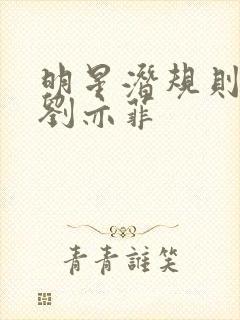 明星潛規則
劉亦菲
青青誰笑